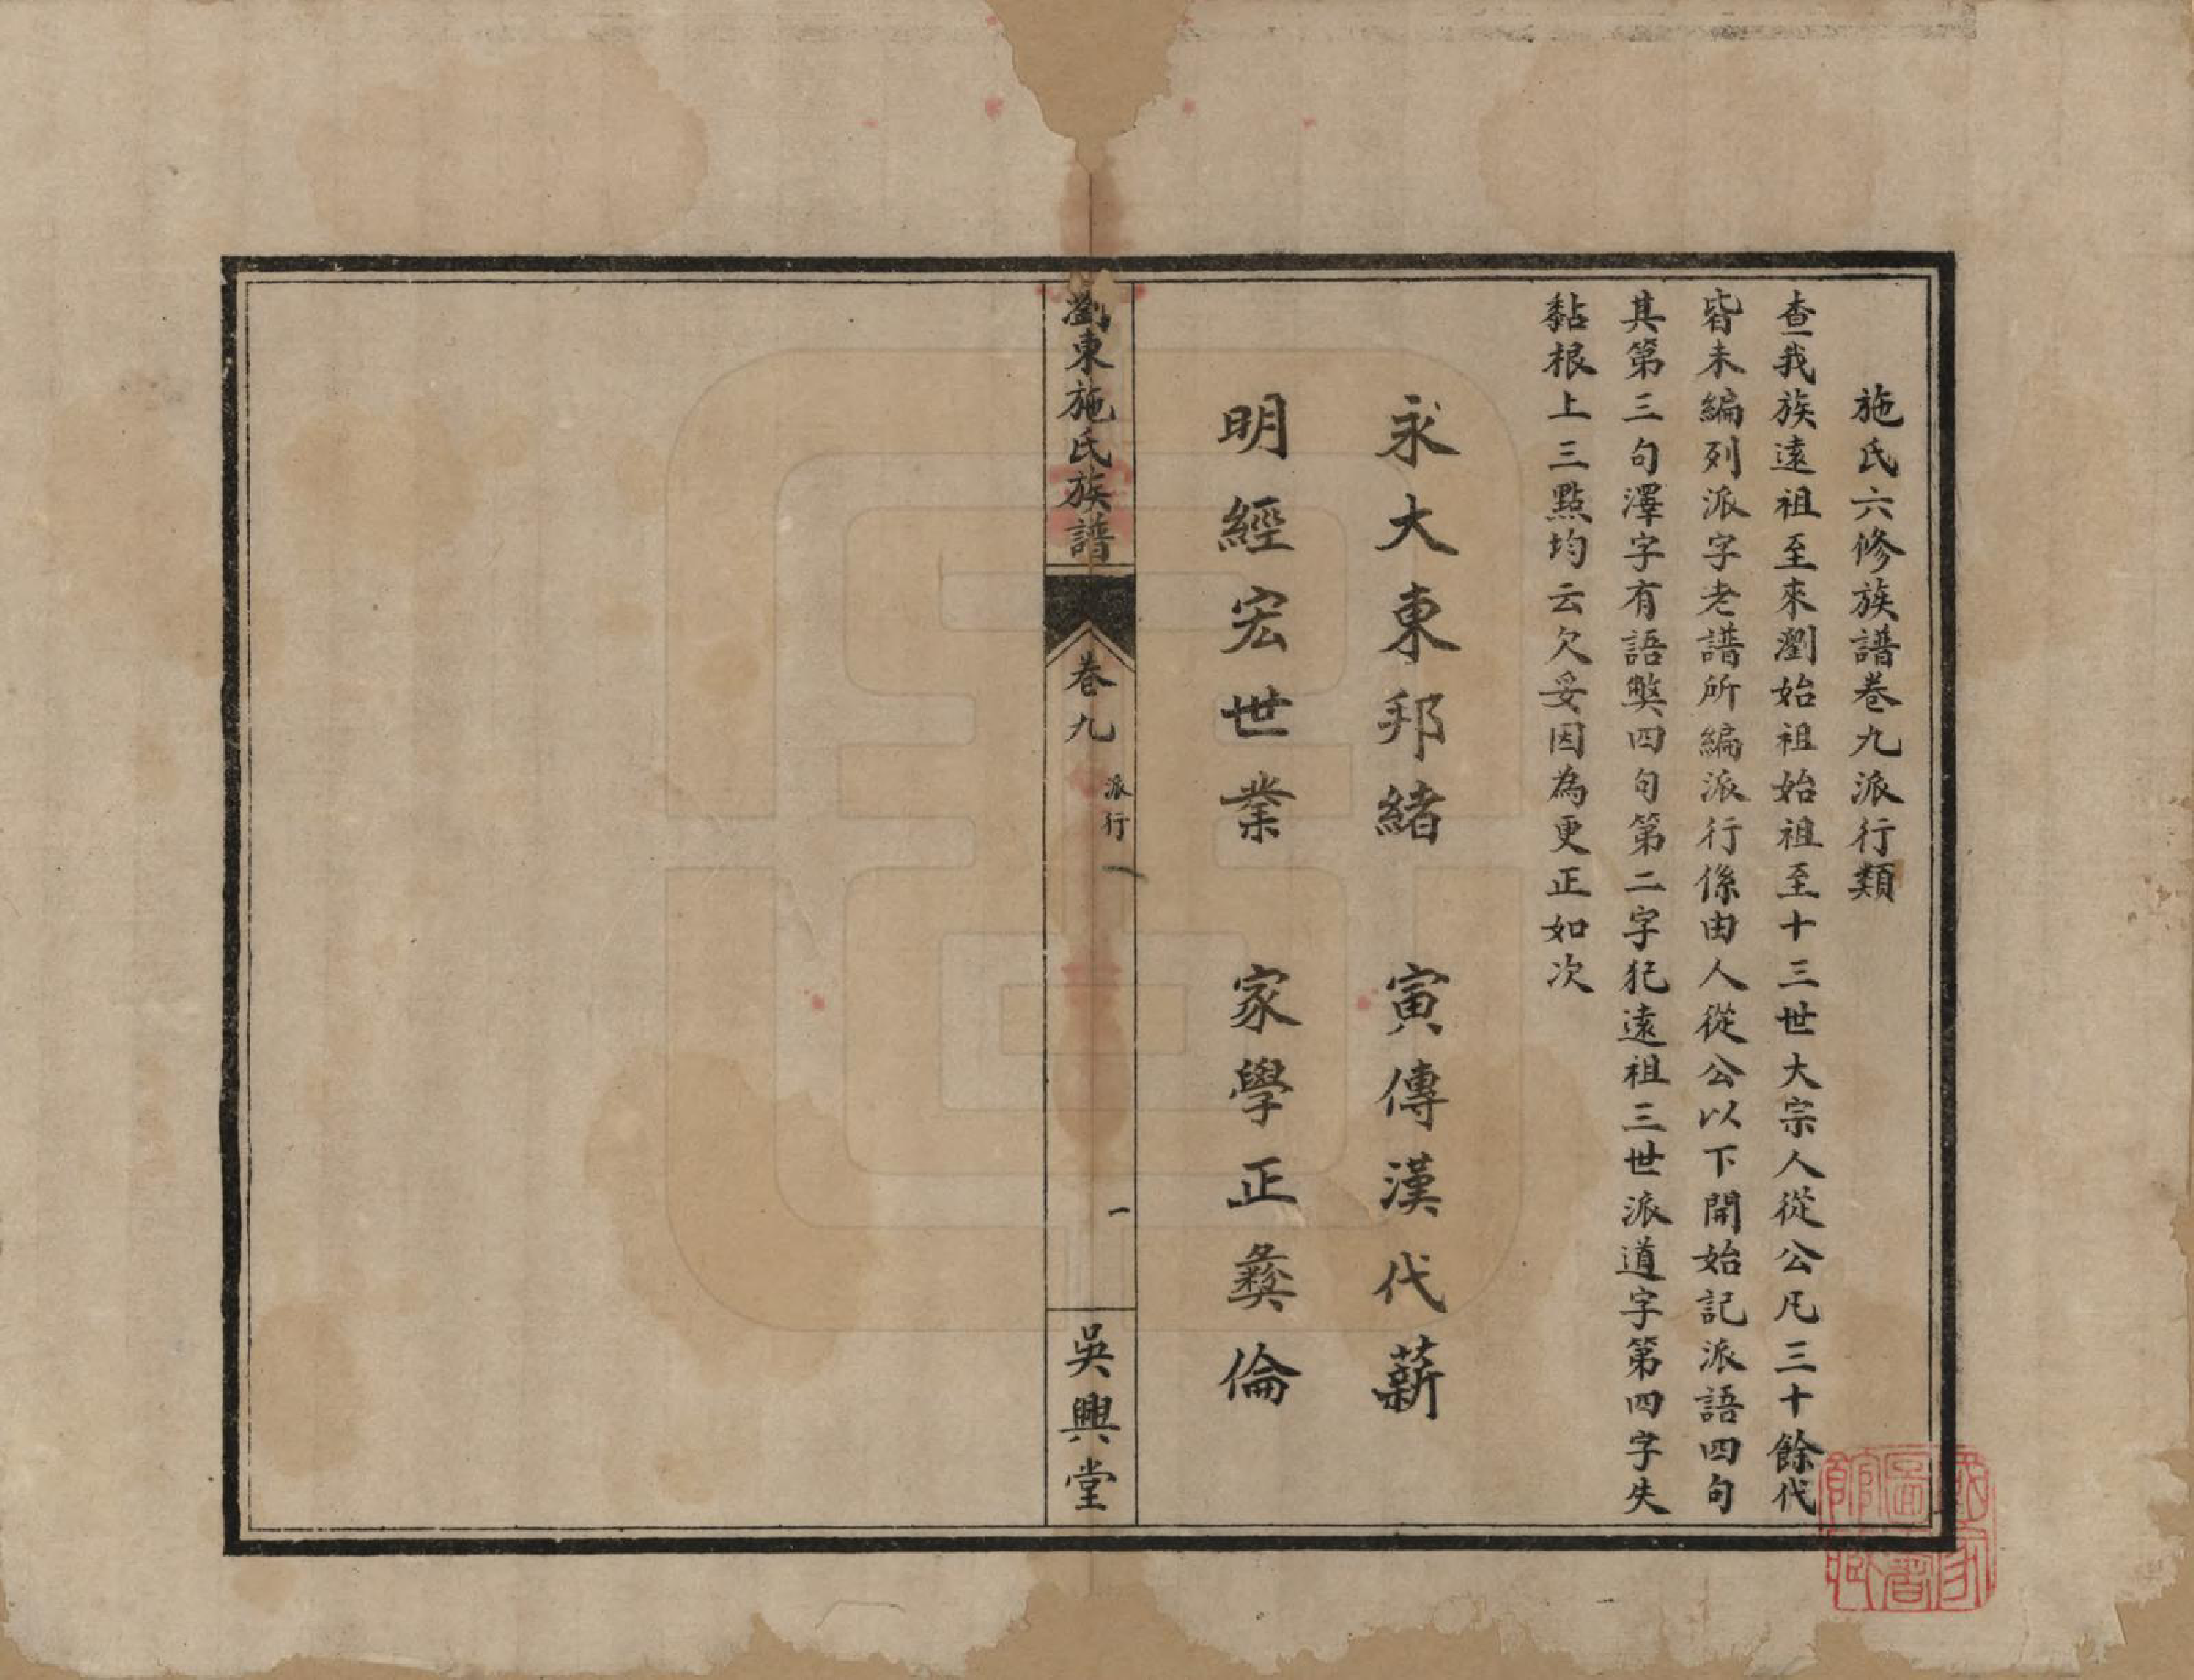 施氏六修族譜卷九派行類
查我族遠祖至來瀏始祖始祖至十三世大宗人從公凡三十餘代
皆未編列派字老譜所編派行係由人從公以下開始記派語四句
其第三句澤字有語獘四句第二字犯遠祖三世派道字第四字失
黏根上三點均云欠妥因為更正如次
永大東邦緒　寅傳漢代薪
明經宏世業　家學正彜倫
瀏東施氏族譜
卷九
派行
一
吳興堂
國家圖書館藏